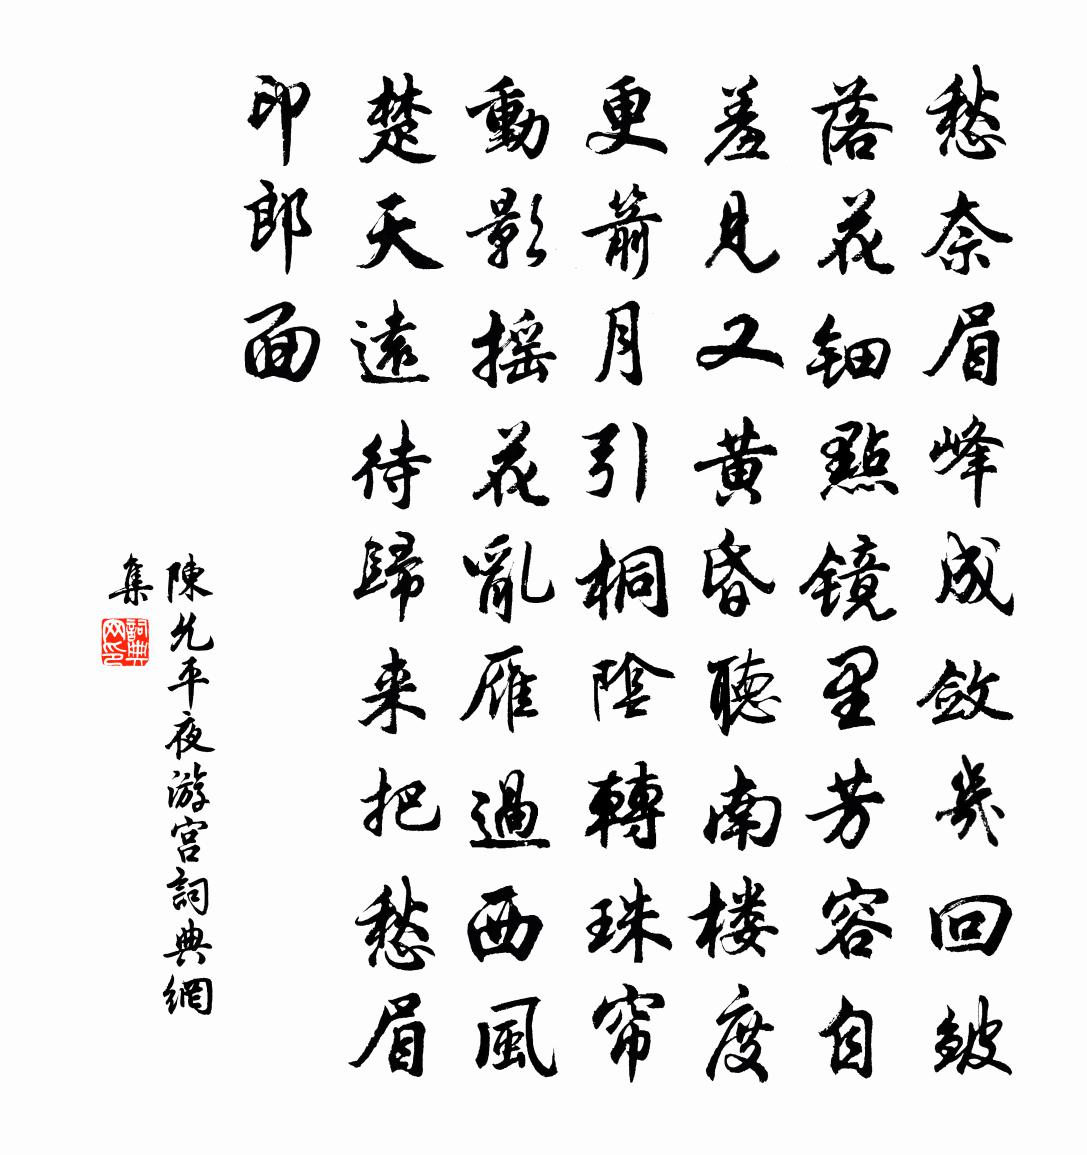 愁奈眉峰成斂幾回皴
落花鈿點鏡里芳容自
羞見又黃昏聽南楼度
更箭月引桐陰轉珠帘
動影摇花亂雁過西風
楚天遠待歸来把愁眉
印郎面
陳允平夜游宫詞典網
集
詞典
网印